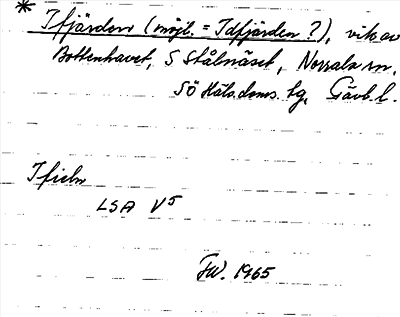 * Ifjärden (möjl. = Idfjärden?), vik av
Bottenhavet, S Stålnäset, Norrala sn,
SÖ Häls. doms. tg, Gävb. l.
Ifieln
LSA V5
FW. 1965